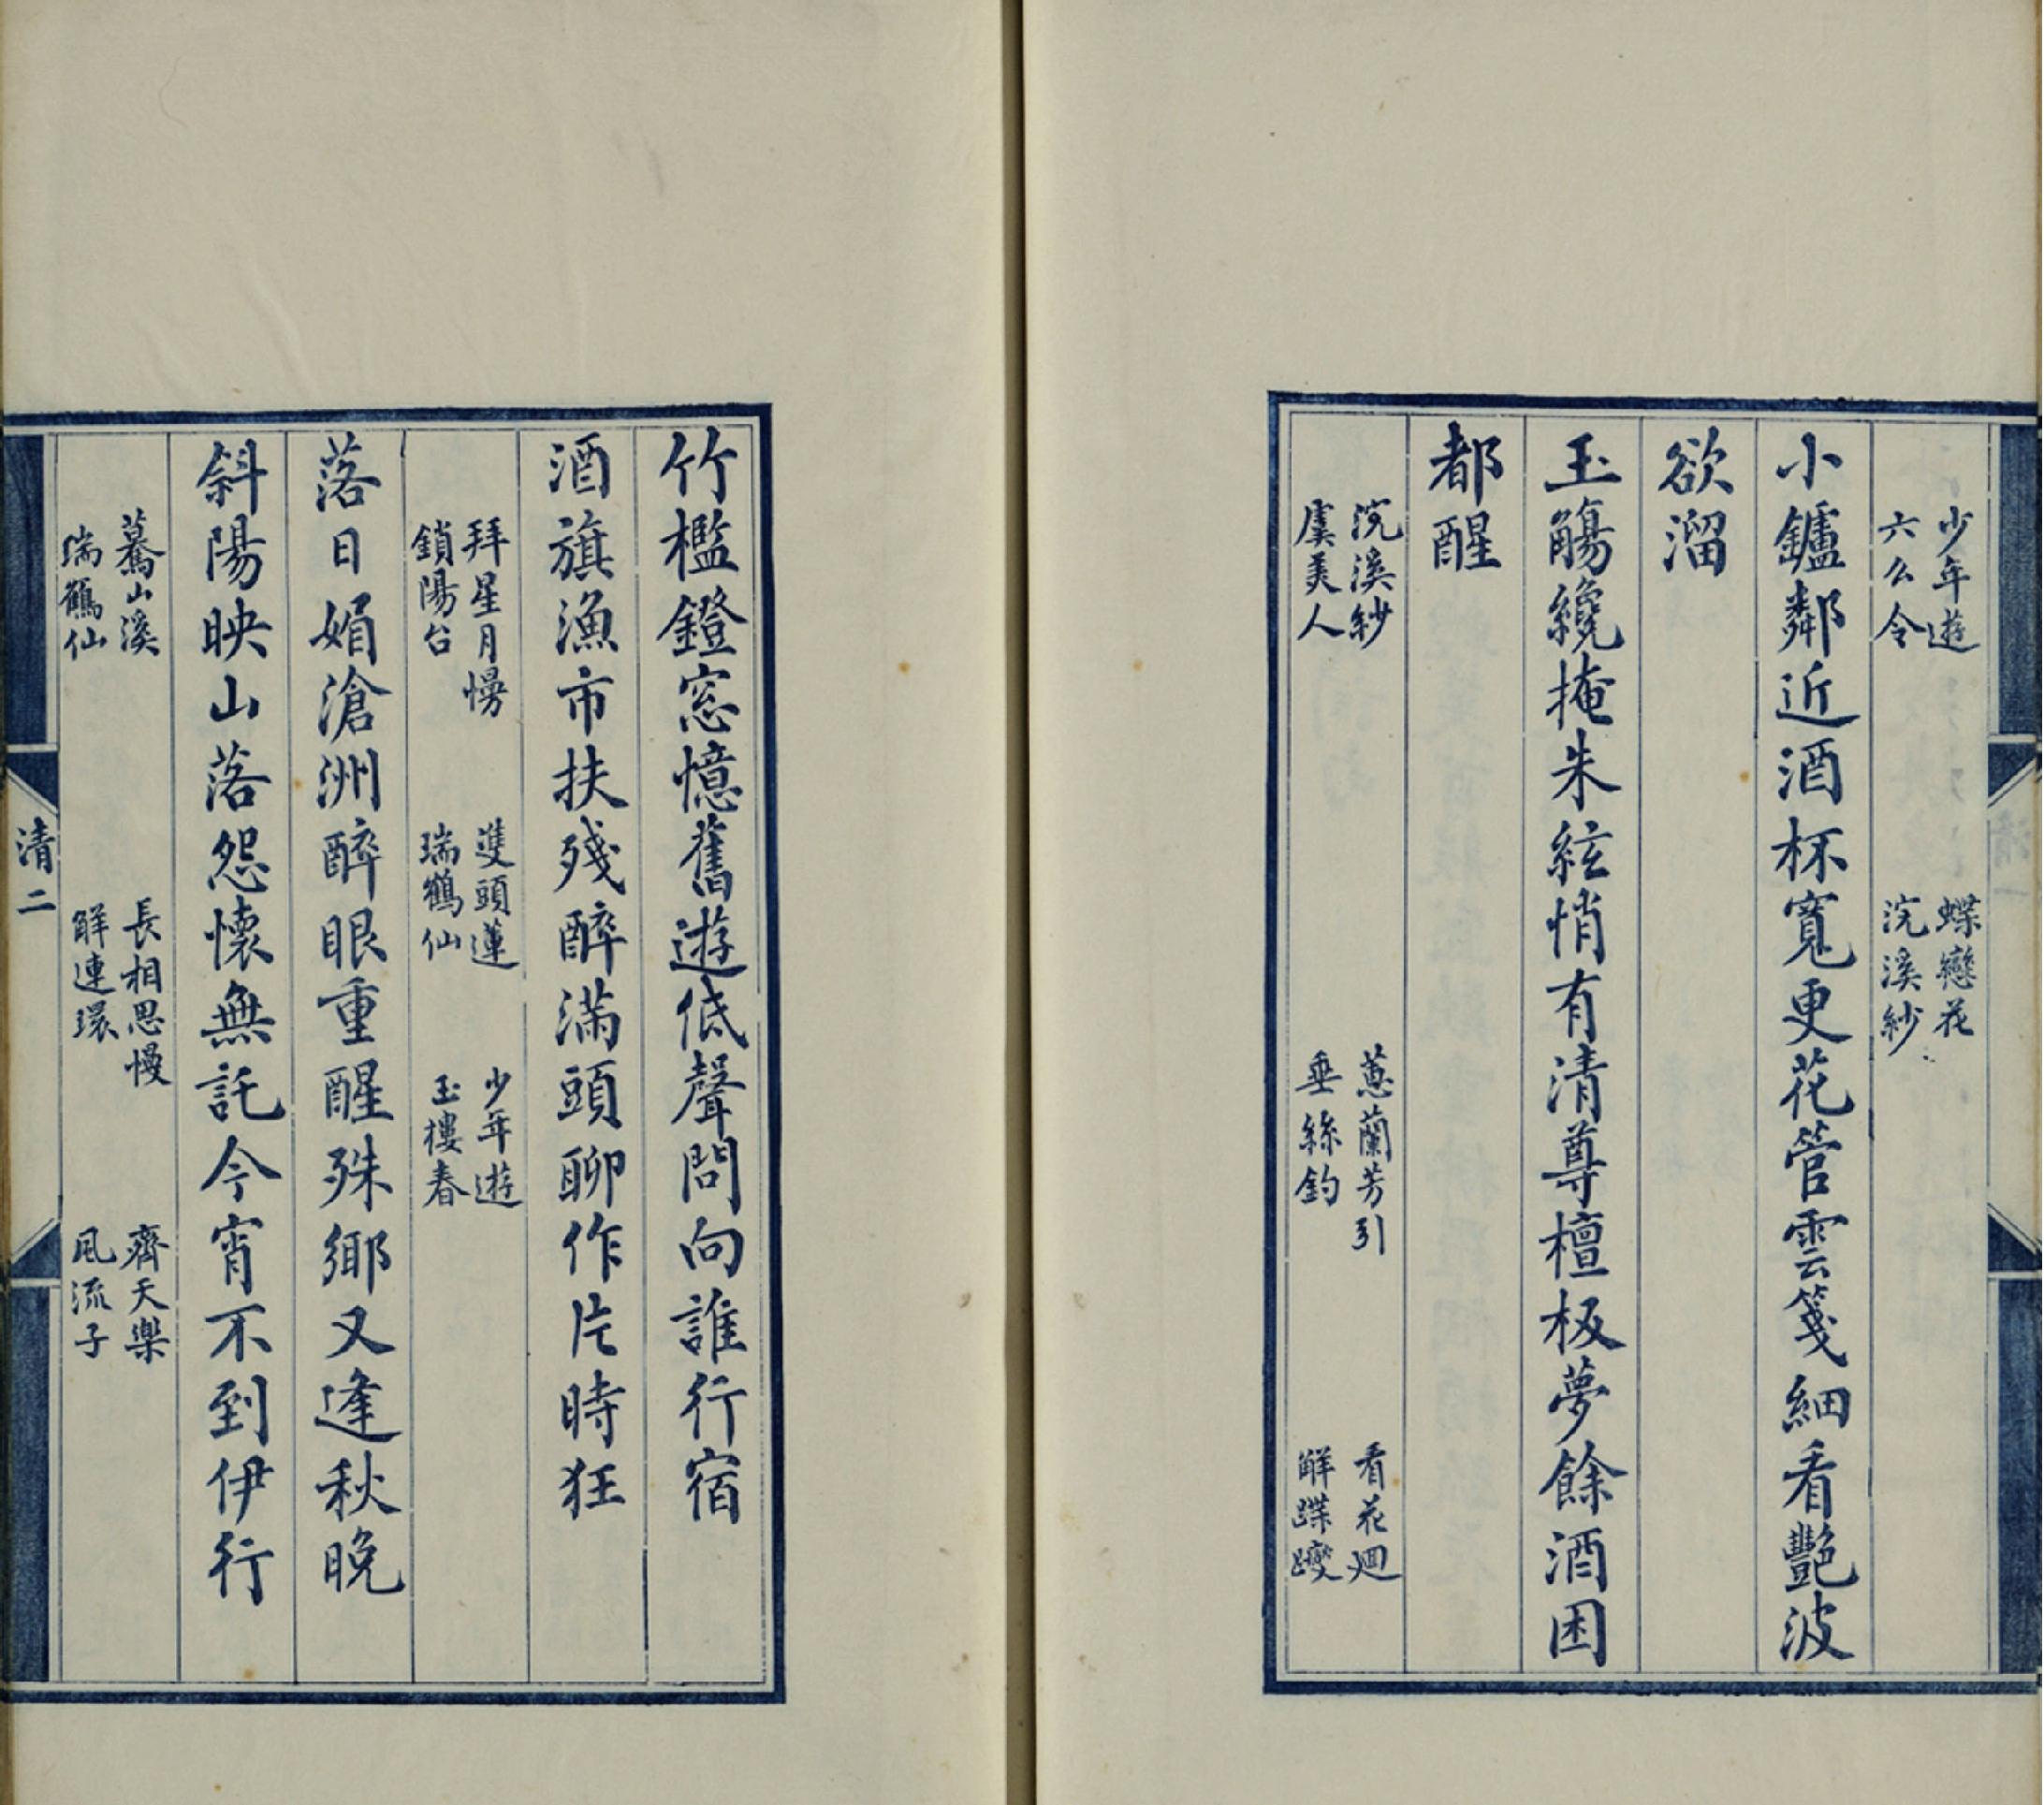 少年遊　蝶戀花
六么令　浣溪紗
小鑪鄰近酒杯寬更花管雲箋細看艷波
欲溜
玉觴纔掩朱絃悄有清尊檀板夢餘酒困
都醒
浣溪紗　蕙蘭芳引　看花迴
虞美人　垂絲釣　解蹀躞
竹檻鐙窓憶舊遊低聲問向誰行宿
酒旗漁市扶殘醉滿頭聊作片時狂
拜星月慢　雙頭蓮　少年遊
鎖陽台　瑞鶴仙　玉樓春
落日媚滄洲醉眼重醒殊鄉又逢秋晚
斜陽映山落怨懷無託今宵不到伊行
驀山溪　長相思慢　齊天樂
瑞鶴仙　解連環　風流子
清二